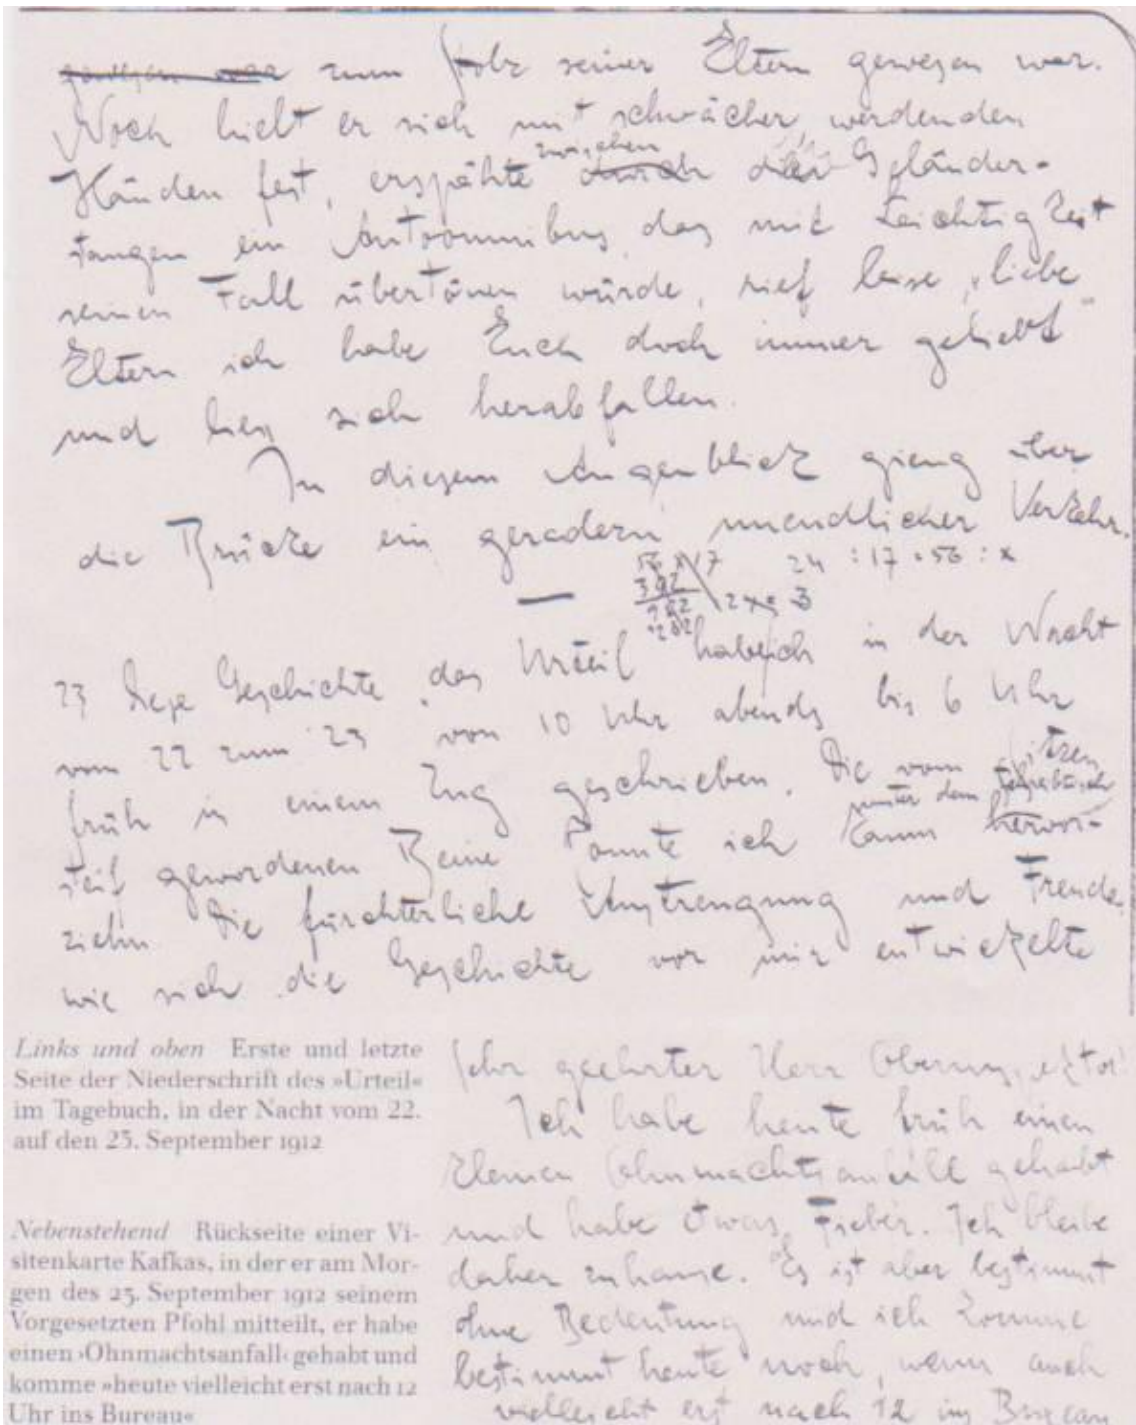 zum Stolz seiner Eltern gewesen war.
Noch hielt er sich mit schwächer werdenden
Händen fest, erspähte zwischen den Geländer-
stangen ein Autoomnibus das mit Leichtigkeit
seinen Fall übertönen würde, rief leise „liebe
Eltern ich habe Euch doch immer geliebt“
und liess sich herabfallen.
In diesem Augenblick gieng über
die Brücke ein geradezu unendlicher Verkehr.
—
56 x 17 24 : 17 = 56 : x
392
23 Diese Geschichte „das Urteil“ habe ich in der Nacht
vom 22 zum 23 von 10 Uhr abends bis 6 Uhr
früh in einem Zug geschrieben. Die vom sitzen
steif gewordenen Beine konnte ich kaum unter dem Schreibtisch hervor-
ziehn. Die fürchterliche Anstrengung und Freude,
wie sich die Geschichte vor mir entwickelte
Links und oben Erste und letzte
Seite der Niederschrift des »Urteil«
im Tagebuch, in der Nacht vom 22.
auf den 23. September 1912
Nebenstehend Rückseite einer Vi-
sitenkarte Kafkas, in der er am Mor-
gen des 23. September 1912 seinem
Vorgesetzten Pfohl mitteilt, er habe
einen ›Ohnmachtsanfall‹ gehabt und
komme »heute vielleicht erst nach 12
Uhr ins Bureau«
Sehr geehrter Herr Oberinspektor!
Ich habe heute früh einen
kleinen Ohnmachtsanfall gehabt
und habe etwas Fieber. Ich bleibe
daher zuhause. Es ist aber bestimmt
ohne Bedeutung und ich komme
bestimmt heute noch, wenn auch
vielleicht erst nach 12 ins Bureau